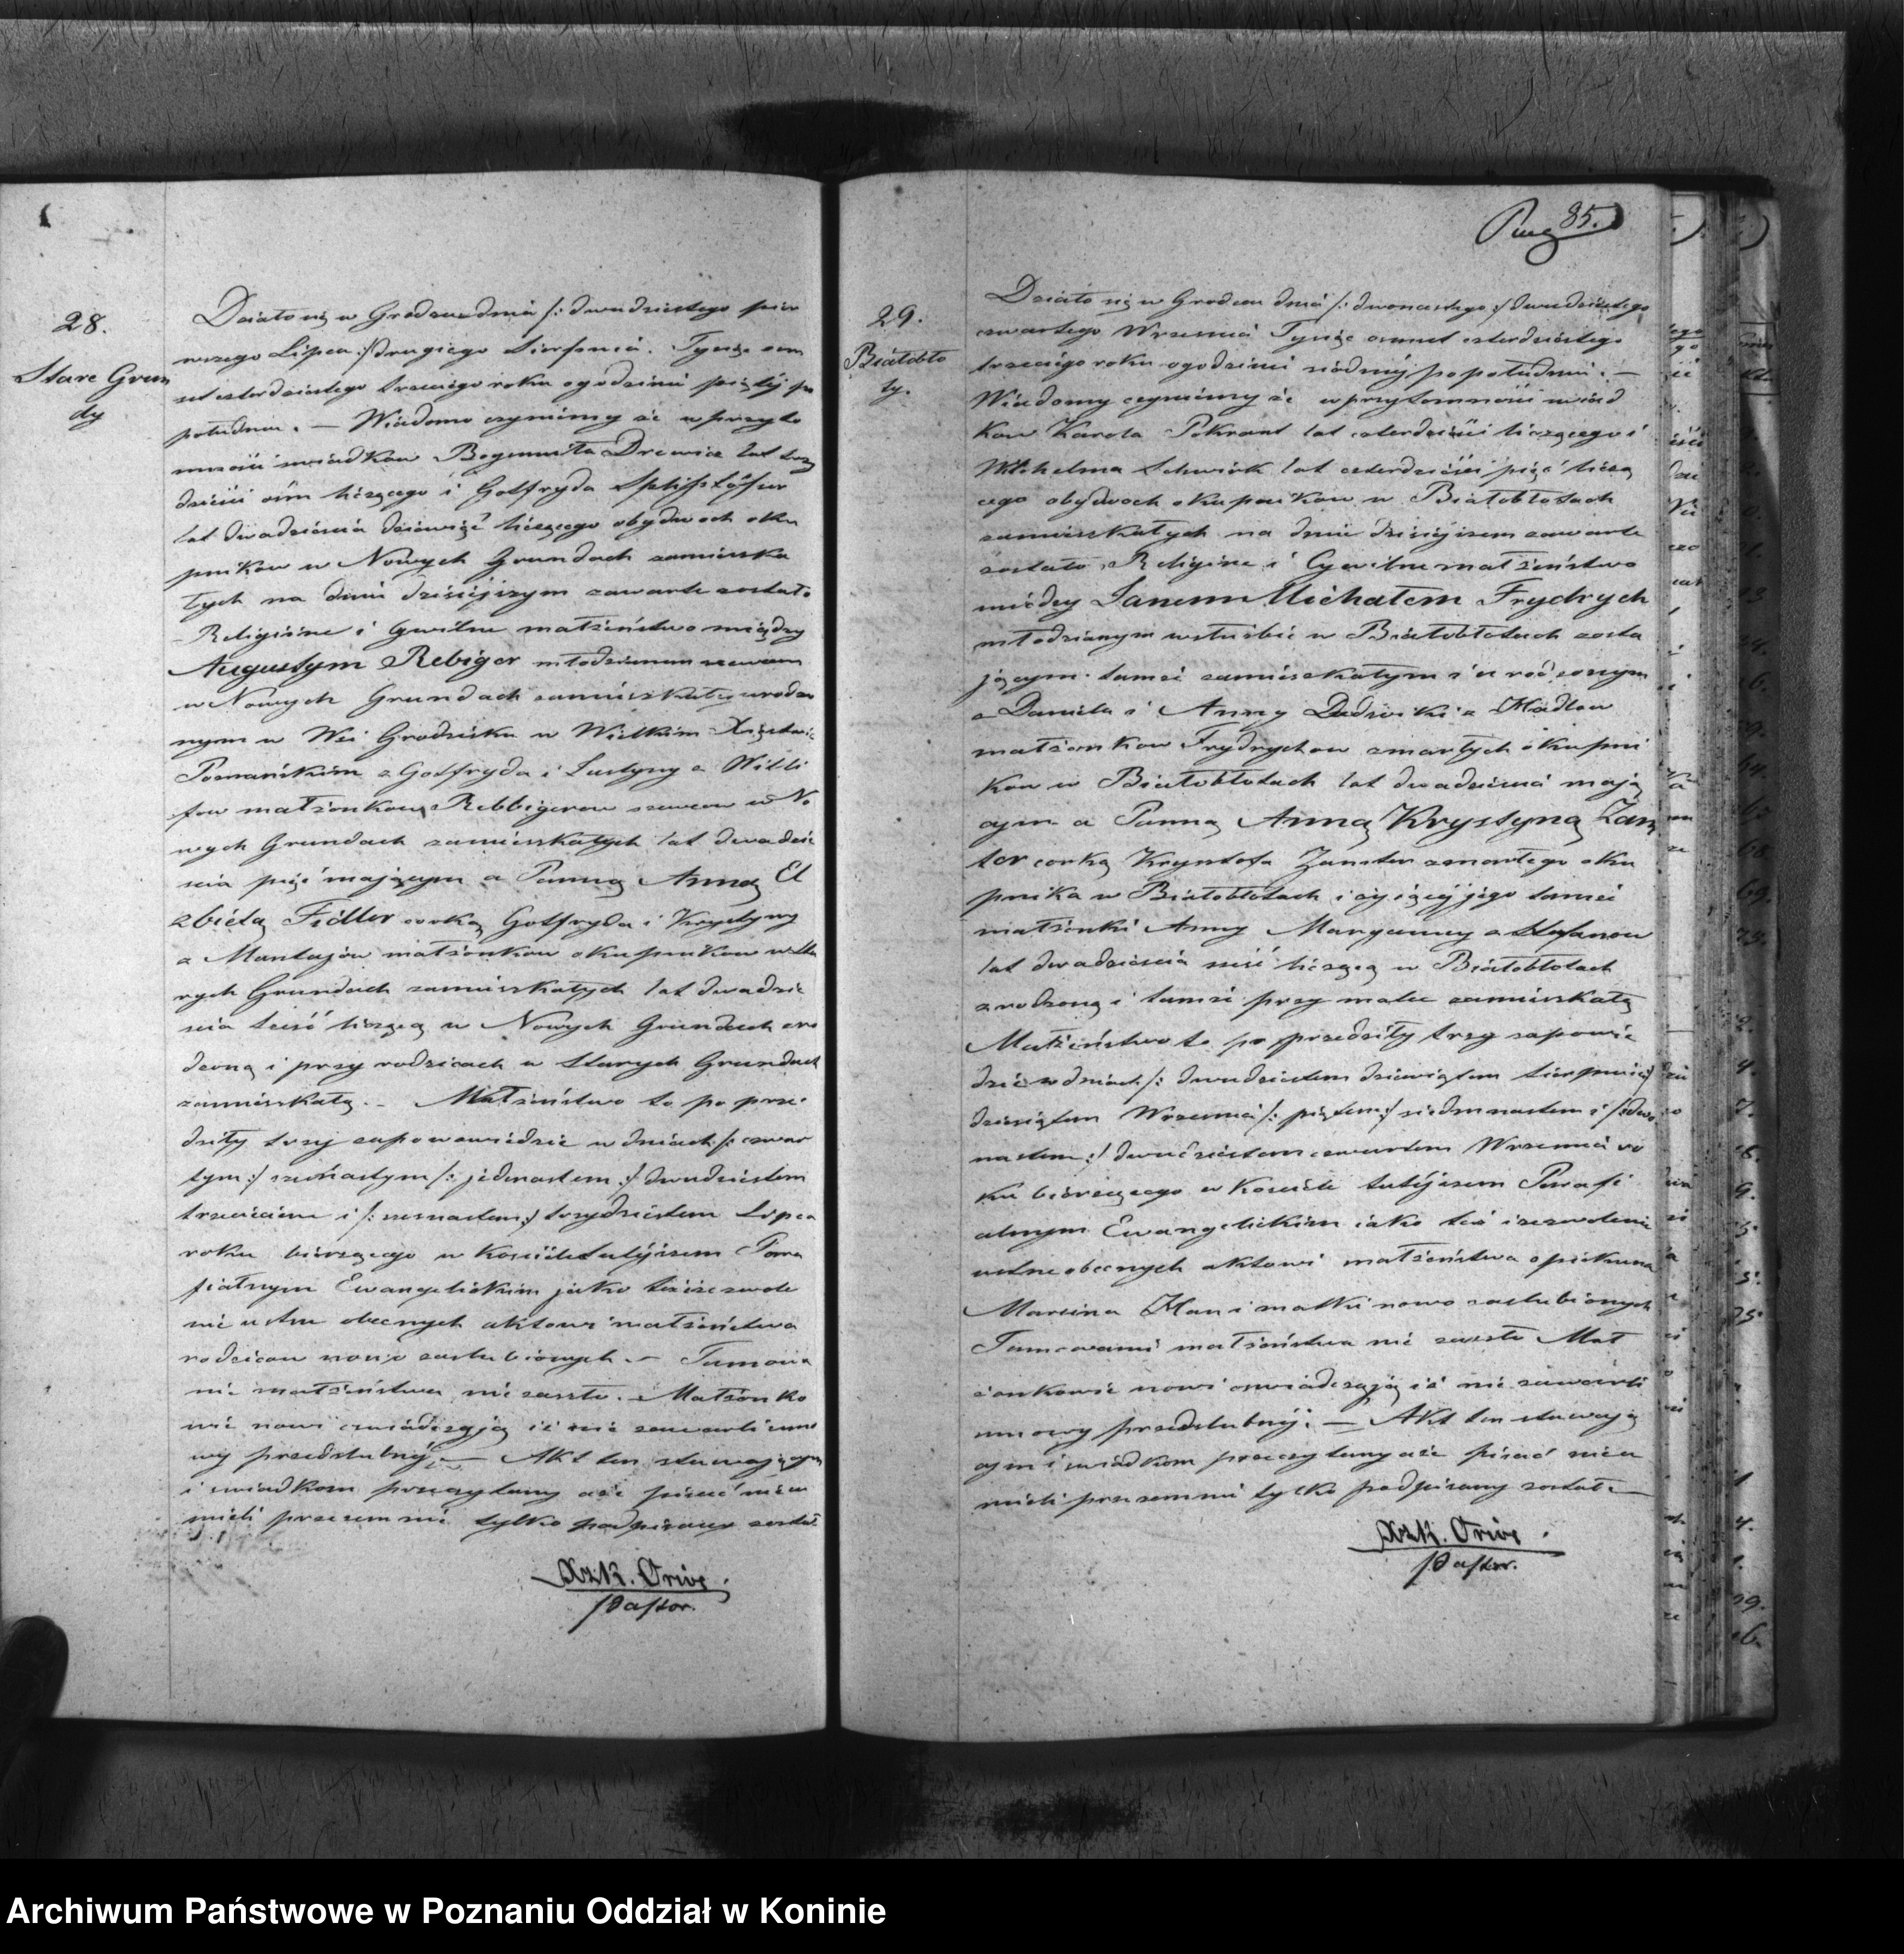 28.
Stare Grun
dy
Działo się w Grodzcu dnia /: dwudziestego pier
wszego Lipca :/ drugiego Sierpnia. Tysiąc ośm
set czterdziestego trzeciego roku o godzinie piątéj po
południu. — Wiadomo czyniemy że w przyto
mności świadków Bogumiła Drewicz lat trzy
dzieści ośm liczącego i Gotfryda
lat dwadzieścia dziewięć liczącego obydwóch oku
pników w Nowych Grundach zamieszka
łych na dniu dzisiéjszym zawarte zostało
Religijne i Cywilne małżeństwo między
Augustym Rebiger młodzianem szewcem
w Nowych Grundach zamieszkałym urodzo
nym w Wsi Grodzisku w Wielkim Xięstwie
Poznańskim z Gotfryda i Justyny z Willi
fow małżonków Rebbigerow szewcow w No
wych Grundach zamieszkałych lat dwadzie
ścia pięć mającym a Panną Anną El
zbietą Fidler corką Gotfryda i Krystyny
z małżonków okupników w Sta
rych Grundach zamieszkałych lat dwadzie
ścia sześć liczącą w Nowych Grundach uro
dzoną i przy rodzicach w Starych Grundach
zamieszkałą. — Małżeństwo to poprze
dziły trzy zapowiedzie w dniach /: czwar
tym :/ szesnastym /: jedenastem :/ dwudziestem
trzeciem i /: ośmnastem :/ trzydziestem Lipca
roku bierzącego w Kościele tutéjszem Para
fialnym Ewangelickim jako téż zezwole
nie ustne obecnych aktowi małżeństwa
rodziców nowo zaślubionych. — Tamowa
nie małżeństwa nie zaszło. — Małżonko
wie nowi oświadczają iż nie zawarli umo
wy przedślubnéj. — Akt ten stawającym
i świadkom przeczytany a że pisać nie u
mieli przezemnie tylko podpisany został
Orive
Pastor.
85.
29.
Białobło
ty.
Działo się w Grodzcu dnia /: dwunastego :/ dwudziestego
czwartego Września Tysiąc ośmset czterdziestego
trzeciego roku o godzinie siódméj po południu. —
Wiadomy czyniemy że w przytomności świad
ków Karola Pokrant lat czterdzieści liczącego i
Wilhelma Schwirk lat czterdzieści pięć liczą
cego obydwóch okupników w Białobłotach
zamieszkałych na dniu dzisiéjszem zawarte
zostało Religijne i Cywilne małżeństwo
między Janem Michałem Frydrych
młodzianym w służbie w Białobłotach zosta
jącym tamże zamieszkałym i urodzonym
z Daniela i Anny Ludwiki z Madlow
małżonków Frydrychow zmarłych okupni
ków w Białobłotach lat dwadzieścia mają
cym a Panną Anną Krystyną Zan
ter corką Krysztofa Zanter zmarłego oku
pnika w Białobłotach i żyjącéj jego tamże
małżonki Anny Maryanny z Stefanow
lat dwadzieścia sześć liczącą w Białobłotach
zrodzoną i tamże przy matce zamieszkałą
Małżeństwo to poprzedziły trzy zapowie
dzie w dniach /: dwudziestem dziewiątem Sierpnia :/
dziesiątem Września /: piątem :/ siedmnastem i /: dwu
nastem :/ dwudziestem czwartem Września ro
ku bierzącego w Kościele tutéjszem Parafi
alnym Ewangelickim jako téż i zezwolenie
ustne obecnych aktowi małżeństwa opiekuna
Marcina i matki nowo zaślubionych
Tamowanie małżeństwa nie zaszło Mał
żonkowie nowi oświadczają iż nie zawarli
umowy przedślubnéj. — Akt ten stawają
cym i świadkom przeczytany a że pisać nie u
mieli przezemnie tylko podpisany został. —
Orive
Pastor.
Archiwum Państwowe w Poznaniu Oddział w Koninie